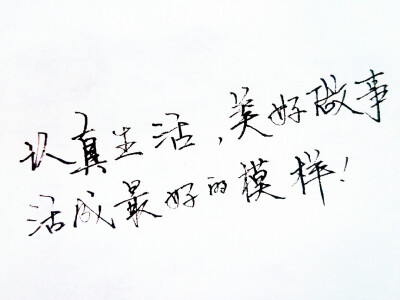 认真生活,美好做事
活成最好的模样!